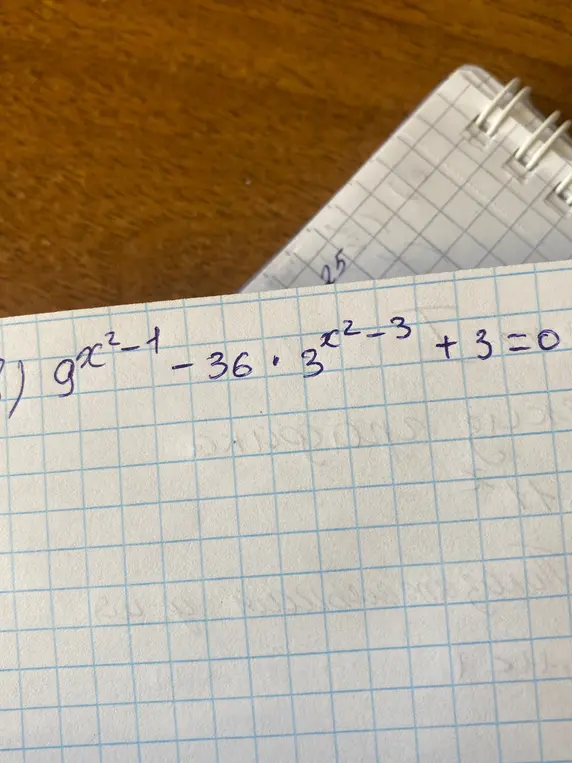 25
) 9^{x^2-1} - 36 · 3^{x^2-3} + 3 = 0